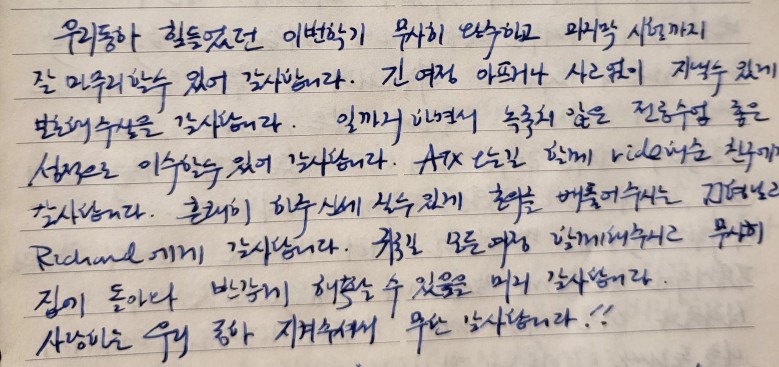 우리동하 힘들었던 이번학기 무사히 완수하고 마지막 시험까지
잘 마무리할수 있어 감사합니다. 긴 여정 아프거나 사고없이 지낼수 있게
보호해주심을 감사합니다. 일까지 하면서 녹록치 않은 전공수업 좋은
성적으로 이수할수 있어 감사합니다. ATX 오는길 함께 ride해준 친구에게
감사합니다. 흔쾌히 하주 신세 질수있게 호의를 베풀어주시는
Richard 에게 감사합니다. 귀국길 모든여정 함께해주시고 무사히
집에 돌아와 반갑게 해후할 수 있음을 미리 감사합니다.
사랑하는 우리 동하 지켜주셔서 무한 감사합니다.!!